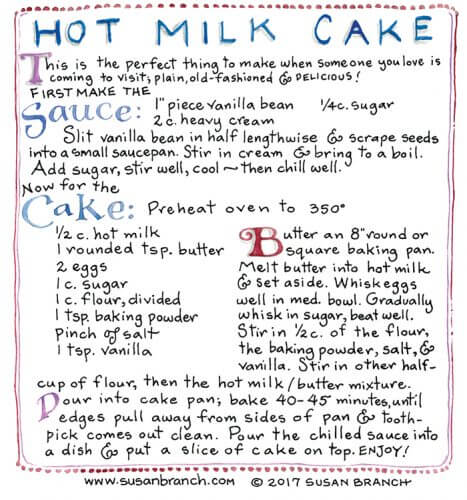 HOT MILK CAKE
This is the perfect thing to make when someone you love is
coming to visit; plain, old-fashioned & DELICIOUS!
FIRST MAKE THE
Sauce: 1" piece vanilla bean 1/4 c. sugar
2 c. heavy cream
Slit vanilla bean in half lengthwise & scrape seeds
into a small saucepan. Stir in cream & bring to a boil.
Add sugar, stir well, cool ~ then chill well.
Now for the
Cake: Preheat oven to 350°
1/2 c. hot milk
1 rounded tsp. butter
2 eggs
1 c. sugar
1 c. flour, divided
1 tsp. baking powder
Pinch of salt
1 tsp. vanilla
Butter an 8" round or
square baking pan.
Melt butter into hot milk
& set aside. Whisk eggs
well in med. bowl. Gradually
whisk in sugar, beat well.
Stir in 1/2 c. of the flour,
the baking powder, salt, &
vanilla. Stir in other half-
cup of flour, then the hot milk/butter mixture.
Pour into cake pan; bake 40-45 minutes, until
edges pull away from sides of pan & tooth-
pick comes out clean. Pour the chilled sauce into
a dish & put a slice of cake on top. ENJOY!
www.susanbranch.com © 2017 SUSAN BRANCH